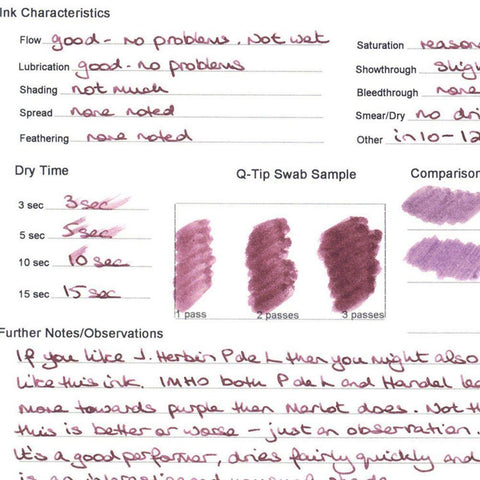 Ink Characteristics
Flow good - no problems. Not wet
Lubrication good - no problems
Shading not much
Spread none noted
Feathering none noted
Saturation
Showthrough
Bleedthrough none
Smear/Dry no
Other in 10-12
Dry Time
3 sec 3 sec
5 sec 5 sec
10 sec 10 sec
15 sec 15 sec
Q-Tip Swab Sample
1 pass 2 passes 3 passes
Comparison
Further Notes/Observations
If you like J. Herbin P de L then you might also
like this ink. IMHO both P de L and Handel
more towards purple than Merlot does. Not
this is better or worse - just an observation.
It's a good performer, dries fairly quickly and
is an interesting and unusual shade